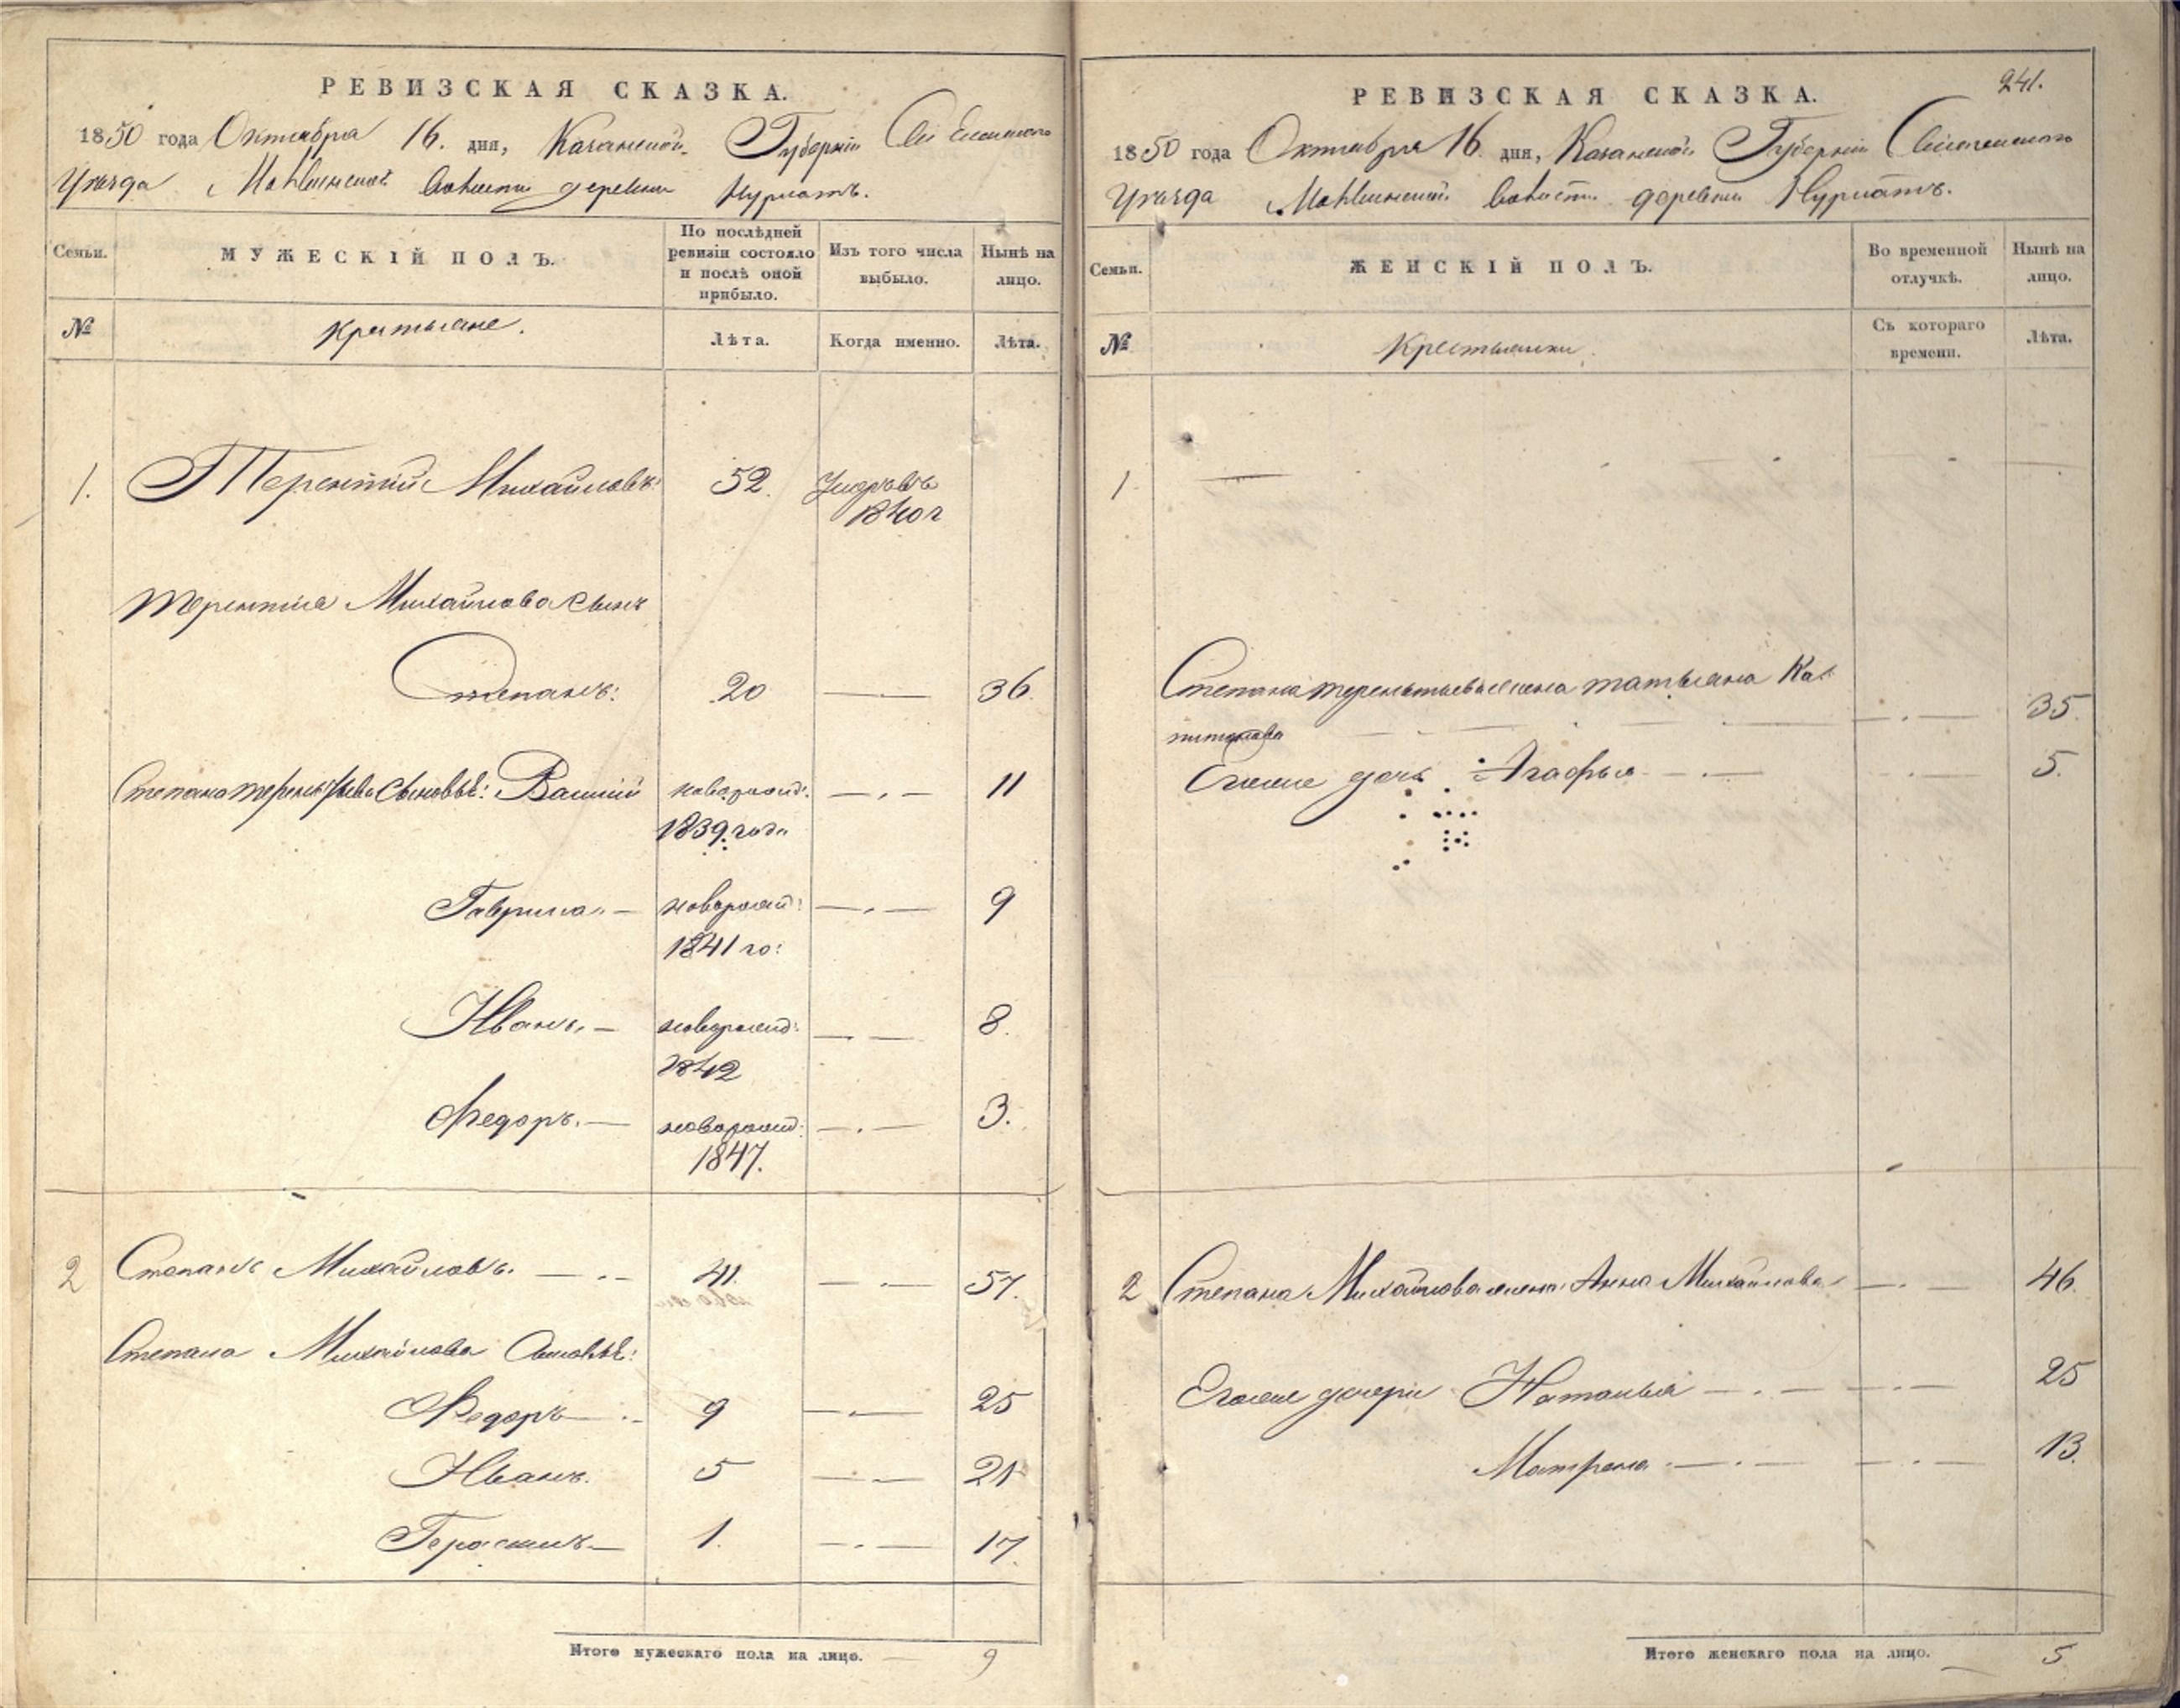 РЕВИЗСКАЯ СКАЗКА.
1850 года Октября 16. дня, Казанской Губернiи Свiяжскаго
Уѣзда волости деревни Нурлатъ.
Семьи.
МУЖЕСКIЙ ПОЛЪ.
По послѣдней
ревизiи состояло
и послѣ оной
прибыло.
Изъ того числа
выбыло.
Нынѣ на
лицо.
№
Крестьяне.
Лѣта.
Когда именно.
Лѣта.
1. Терентiй Михайловъ: 52. Умеръ въ
1840 г
Терентiя Михайлова сынъ
Степанъ: 20 36.
Степана Терентьева сыновья: Василiй новорожд: 11
1839. года
Гаврила новорожд: 9
1841 го:
Иванъ новорожд: 8.
1842
Федоръ новорожд: 3.
1847.
2 Степанъ Михайловъ. 41. 57.
Степана Михайлова сыновья:
Федоръ 9 25
Иванъ. 5 21
Герасимъ 1. 17.
Итого мужескаго пола на лицо. 9
241.
РЕВИЗСКАЯ СКАЗКА.
1850 года Октября 16. дня, Казанской Губернiи Свiяжскаго
Уѣзда волости деревни Нурлатъ.
Семьи.
ЖЕНСКIЙ ПОЛЪ.
Во временной
отлучкѣ.
Нынѣ на
лицо.
№
Крестьянки.
Съ котораго
времени.
Лѣта.
1
Степана Терентьева жена Татьяна Ка-
питонова 35.
Егоже дочь Агафья 5.
2 Степана Михайлова жена Анна Михайлова 46.
Егоже дочери Наталья 25
Матрена 13.
Итого женскаго пола на лицо. 5